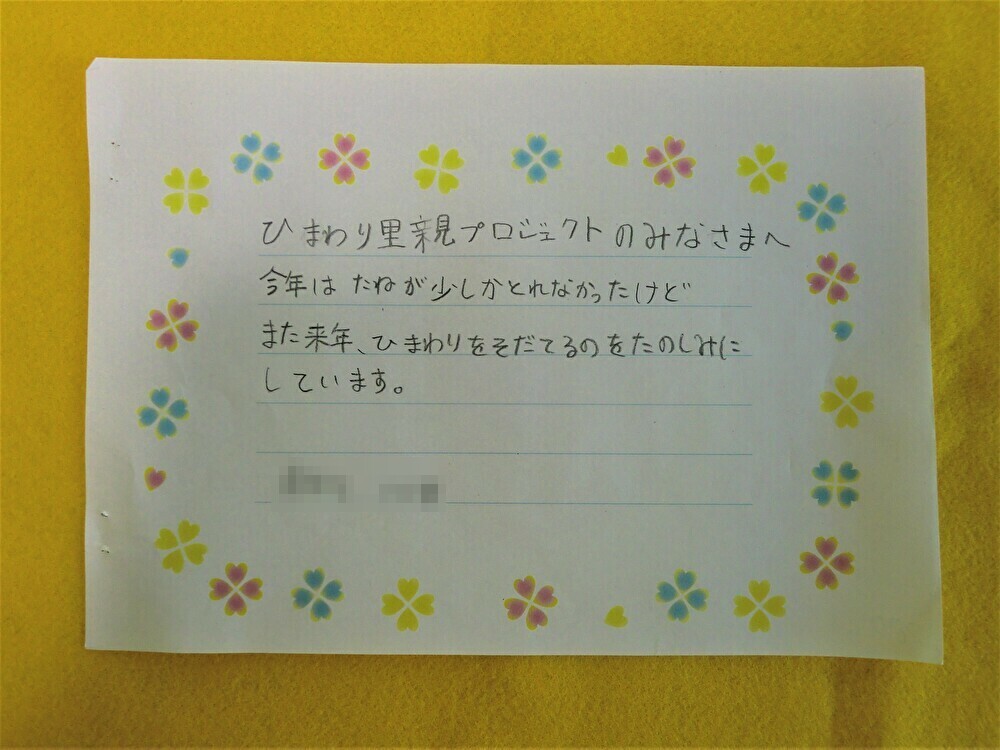 ひまわり里親プロジェクトのみなさまへ
今年は たねが少しかとれなかったけど
また来年、ひまわりをそだてるのをたのしみに
しています。